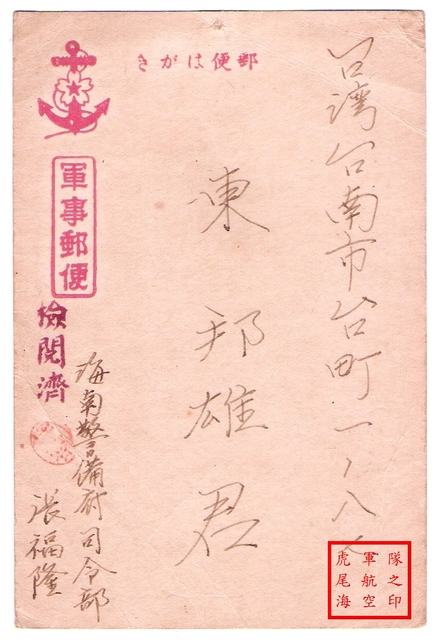 郵便はがき
台湾台南市台町一ノ八
陳邦雄君
軍事郵便
檢閲濟
海南警備府司令部
張福隆
虎尾海
軍航空
隊之印